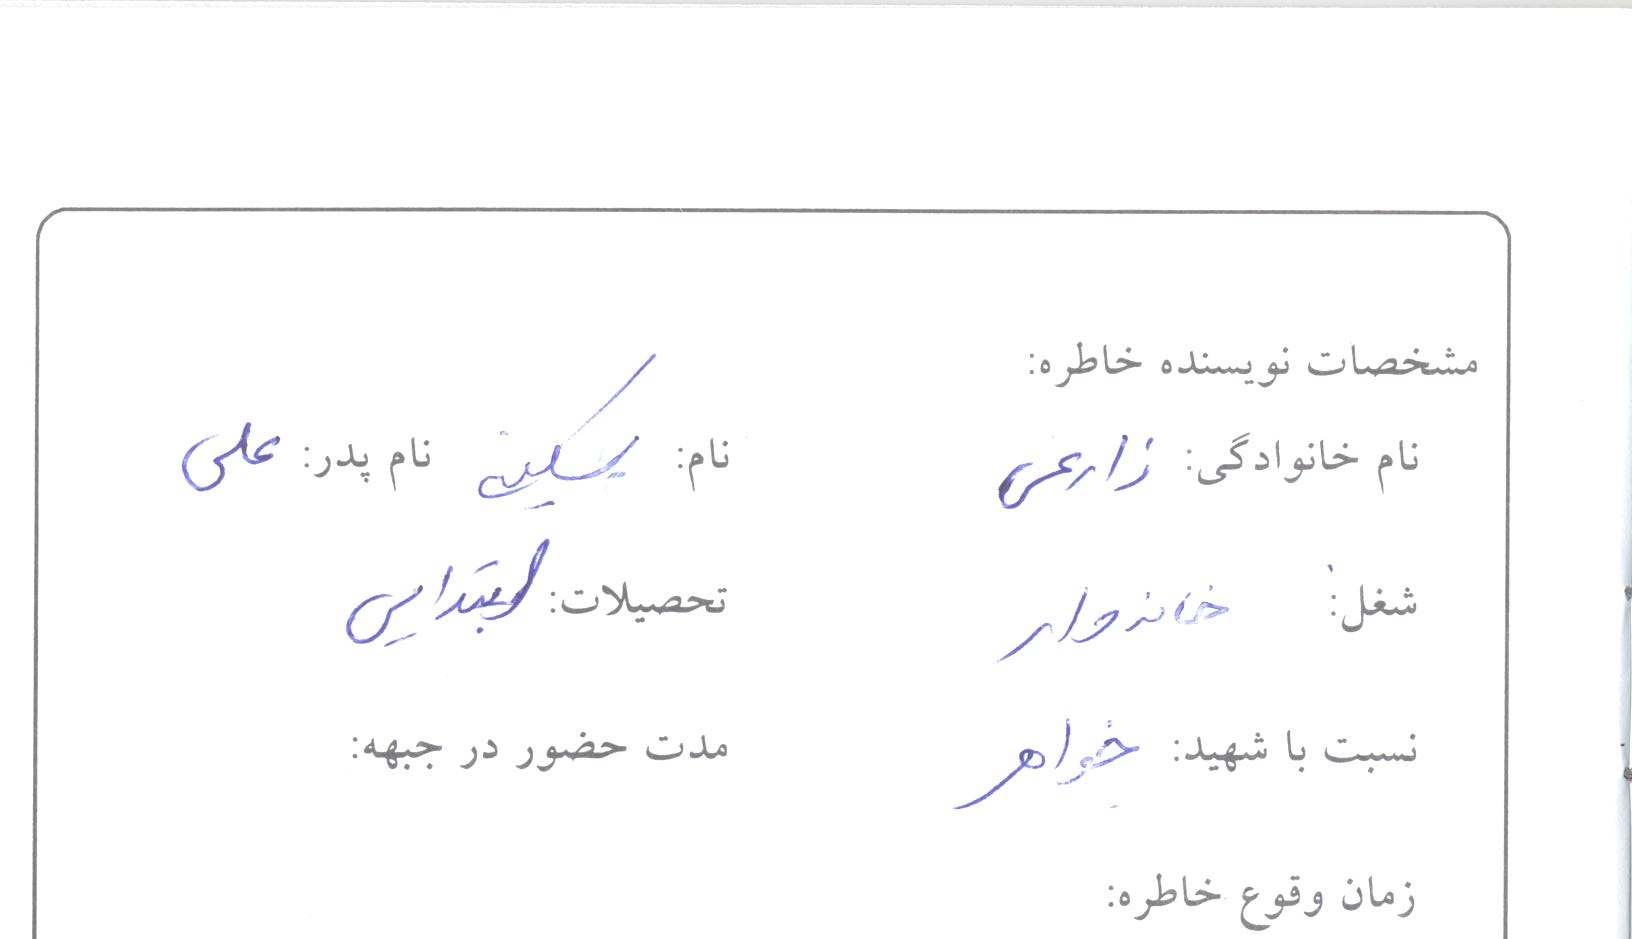 مشخصات نویسنده خاطره:
نام خانوادگی: زارعی نام: سکینه نام پدر: علی
شغل: خانه دار تحصیلات: ابتدایی
نسبت با شهید: خواهر مدت حضور در جبهه:
زمان وقوع خاطره: